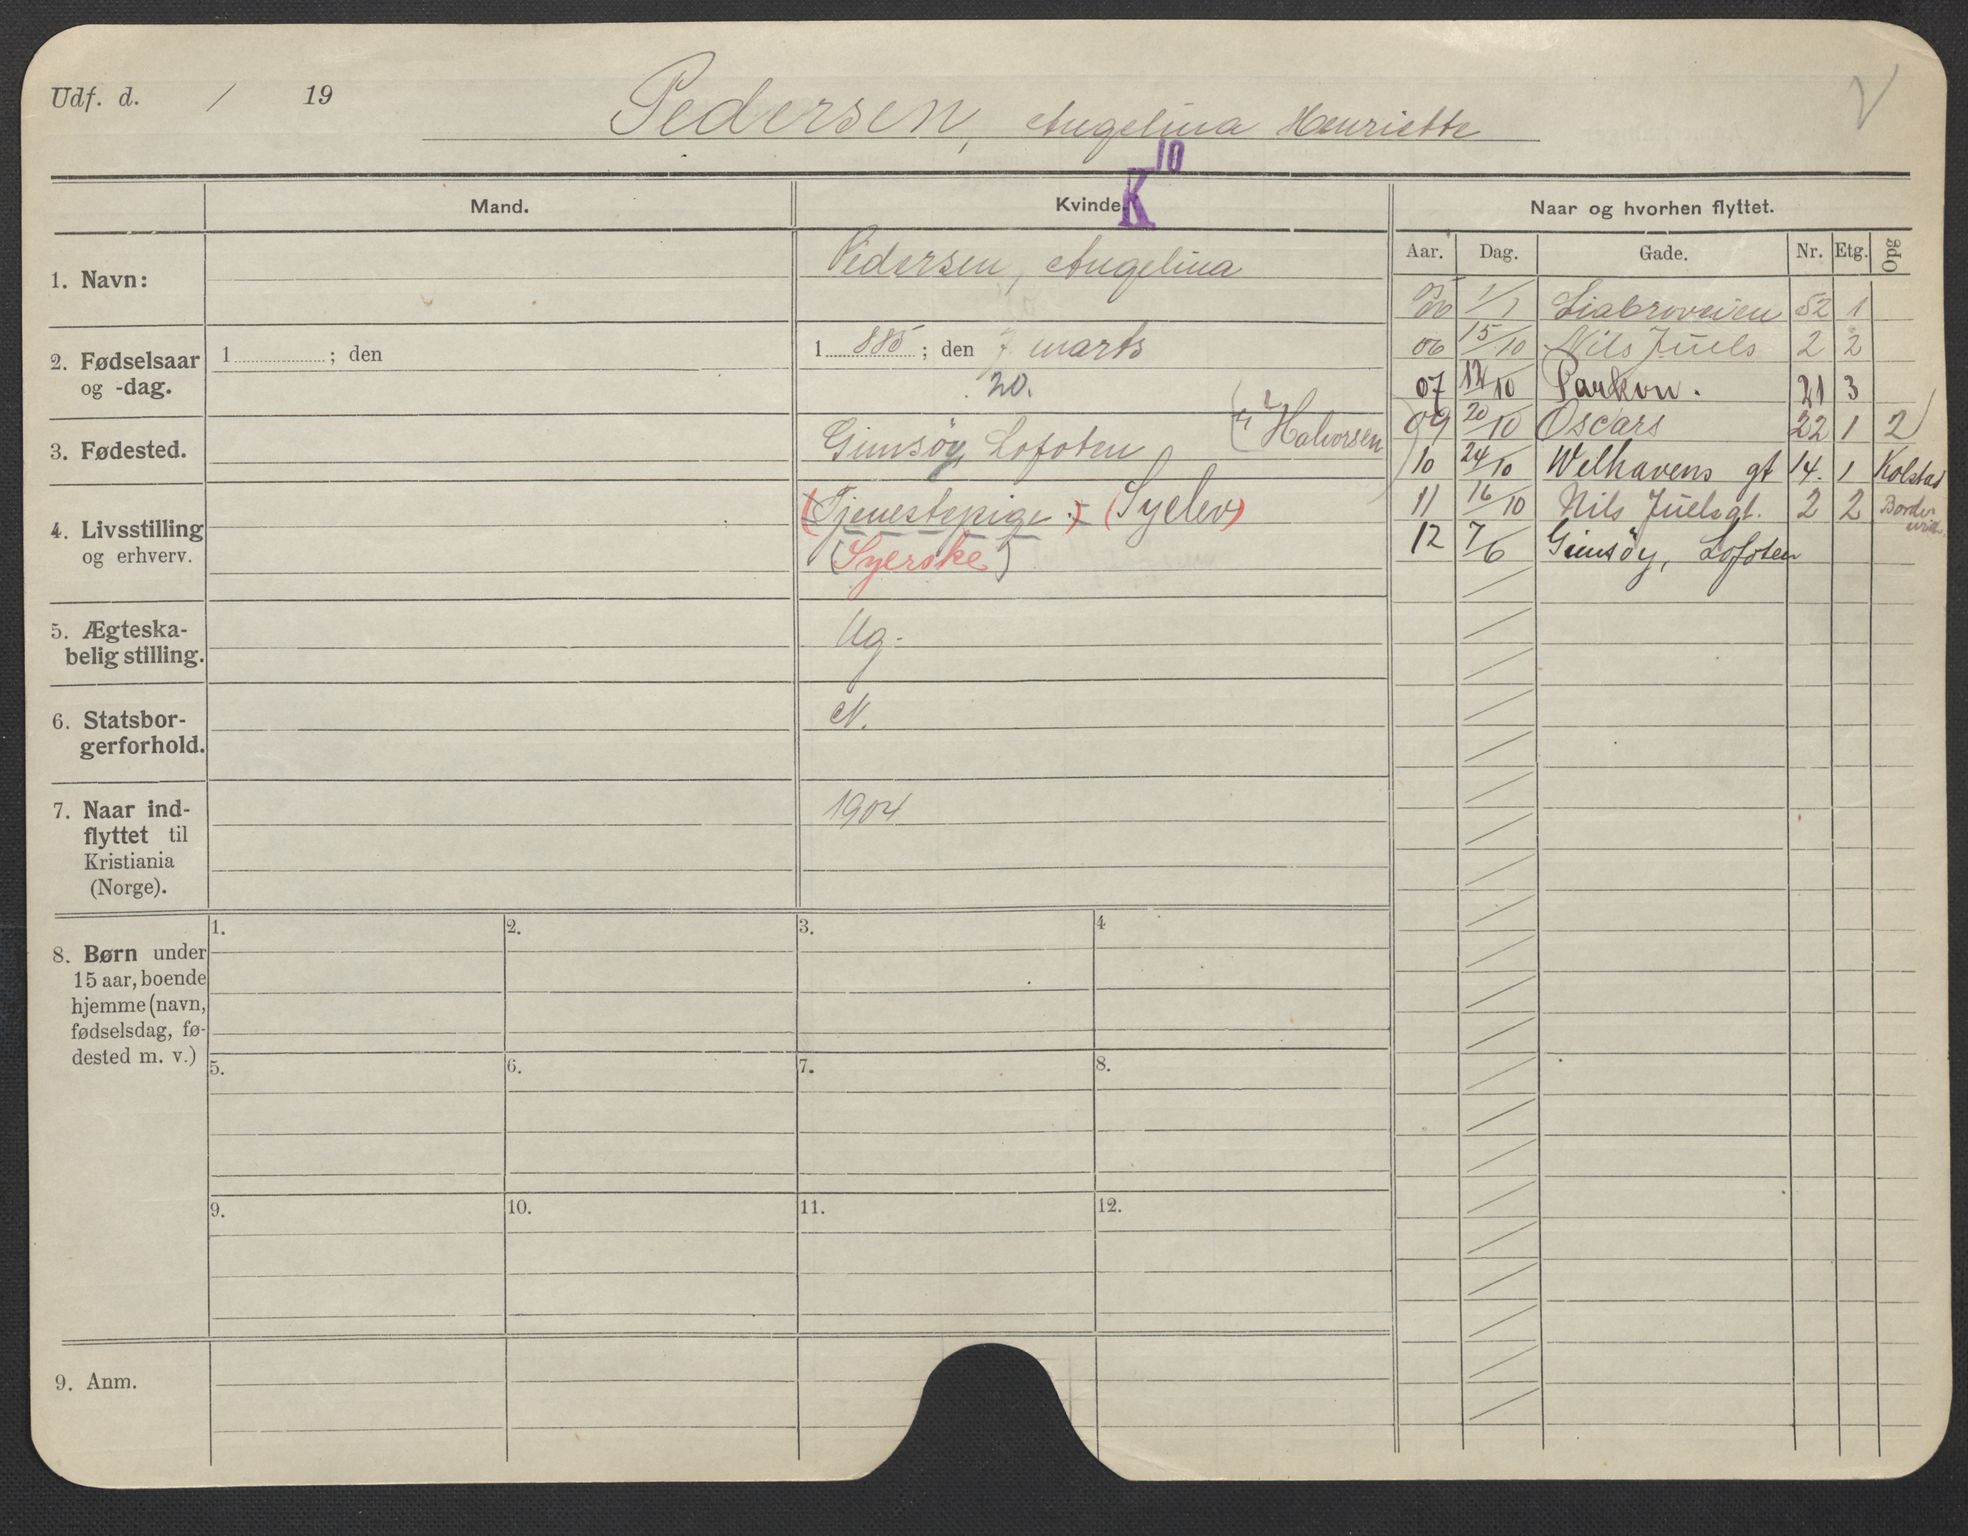 Udf. d. / 19
Pedersen, Angelina Henriette
10
K
Mand.
Kvinde.
Naar og hvorhen flyttet.
Aar. Dag. Gade. Nr. Etg. Opg
1. Navn:
Pedersen, Angelina
2. Fødselsaar
og -dag.
1 ; den
1 885 ; den 7. marts
20.
3. Fødested.
Gimsøy, Lofoten
Halvorsen
4. Livsstilling
og erhverv.
(Tjenestepige.) (Syelev)
(Syerske)
5. Ægteska-
belig stilling.
Ug.
6. Statsbor-
gerforhold.
N.
7. Naar ind-
flyttet til
Kristiania
(Norge).
1904
8. Børn under
15 aar, boende
hjemme (navn,
fødselsdag, fø-
dested m. v.)
1. 2. 3. 4
5. 6. 7. 8.
9. 10. 11. 12.
9. Anm.
06 1/1 Liabroveien 52 1
06 15/10 Nils Juels 2 2
07 12/10 Parkvn. 21 3
09 20/10 Oscars 22 1 2
10 24/10 Welhavens gt 14. 1 Kolstad
11 16/10 Nils Juelsgt. 2 2
12 7/6 Gimsøy, Lofoten